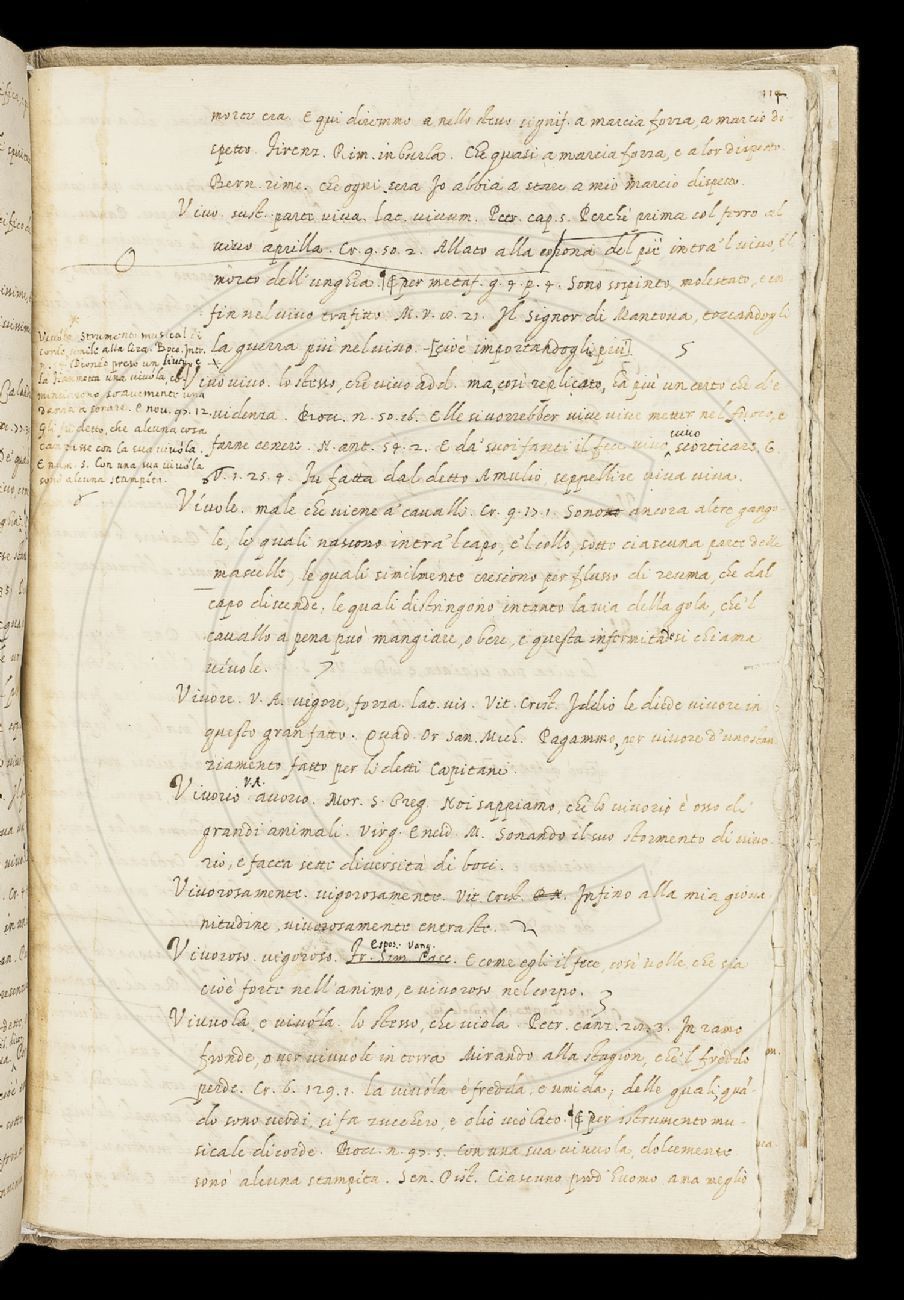 114
morto era. E qui diremmo a nello stesso signif. a marcia forza, a marcio di-
spetto. Firenz. Rim. in burla. Che quasi a marcia forza, e a lor dispetto.
Bern. rime. che ogni sera Io abbia a stare a mio marcio dispetto.
Vivo. sust. parte viva. lat. vivum. Petr. cap. 5. Perchè prima col ferro al
vivo aprilla. Cr. 9. 50. 2. Allato alla del piè intra 'l vivo, e 'l
morto dell' unghia. Per metaf. g. 4. p. 4. Sono sospinto, molestato, e in-
fin nel vivo trafitto. M. V. 10. 21. Il Signor di Mantova, toccandogli
la guerra più nel vivo. [cioè importandogli più]
Vivo vivo. lo stesso, che vivo add. ma, così replicato, ha più un certo che d'e-
videnza. Bocc. n. 50. 16. Elle si vorrebber vive vive metter nel fuoco, e
farne cenere. N. ant. 54. 2. E da' suoi fanti il fece vivo vivo scorticare. G.
V. 1. 25. 4. Fu fatta dal detto Amulio seppellire viva viva.
Vivola strumento musical di
corde, simile alla lira. Bocc. Intr.
Dioneo preso un liuto, e
la Fiammetta una vivuola, co-
minciarono soavemente una
danza a sonare. E nov. 97. 12.
Gli fu detto, che alcuna cosa
cantasse con la sua vivuola.
E num. 5. Con una sua vivuola
sonò alcuna stampita.
Vívole. male che viene a' cavalli. Cr. 9. 17. 1. Sono ancora altre gango-
le, le quali nascono intra 'l capo, e 'l collo, sotto ciascuna parte delle
mascelle, le quali similmente crescono per flusso di reuma, che dal
capo discende. le quali distringono intanto la via della gola, che 'l
cavallo a pena può mangiare, o bere, e questa infermitade si chiama
vívole.
Vivore. V. A. vigore, forza. lat. vis. Vit. Crist. Iddio le diede vivore in
questo gran fatto. Quad. Or San Mich. Pagammo, per vivore d'uno stan-
ziamento fatto per li detti Capitani.
Vivorio V. A. avorio. Mor. S. Greg. Noi sappiamo, che lo vivorio è osso di
grandi animali. Virg. Eneid. M. Sonando il suo stormento di vivo-
rio, e facea sette diversità di boci.
Vivorosamente. vigorosamente. Vit. Crist. Infino alla mia giova-
nitudine, vivorosamente entraste.
Vivoroso. vigoroso. Espos. Vang. Fr. Sim. E come egli il fece, così volle, che sia
cioè forte nell'animo, e vivoroso nel corpo.
Vivuola, e vivóla. lo stesso, che viola. Petr. canz. 22. 3. In ramo
fronde, o ver vivuole in terra Mirando alla stagion, che 'l freddo
perde. Cr. 6. 129. 1. la vivuola è fredda, e umida; delle quali, quā-
do sono verdi, si fa zucchero, e olio violato. Per istrumento mu-
sicale di corde. Bocc. n. 97. 5. Con una sua vivuola, dolcemente
sonò alcuna stampita. Sen. Pist. Ciascuno può l'uomo ama meglio